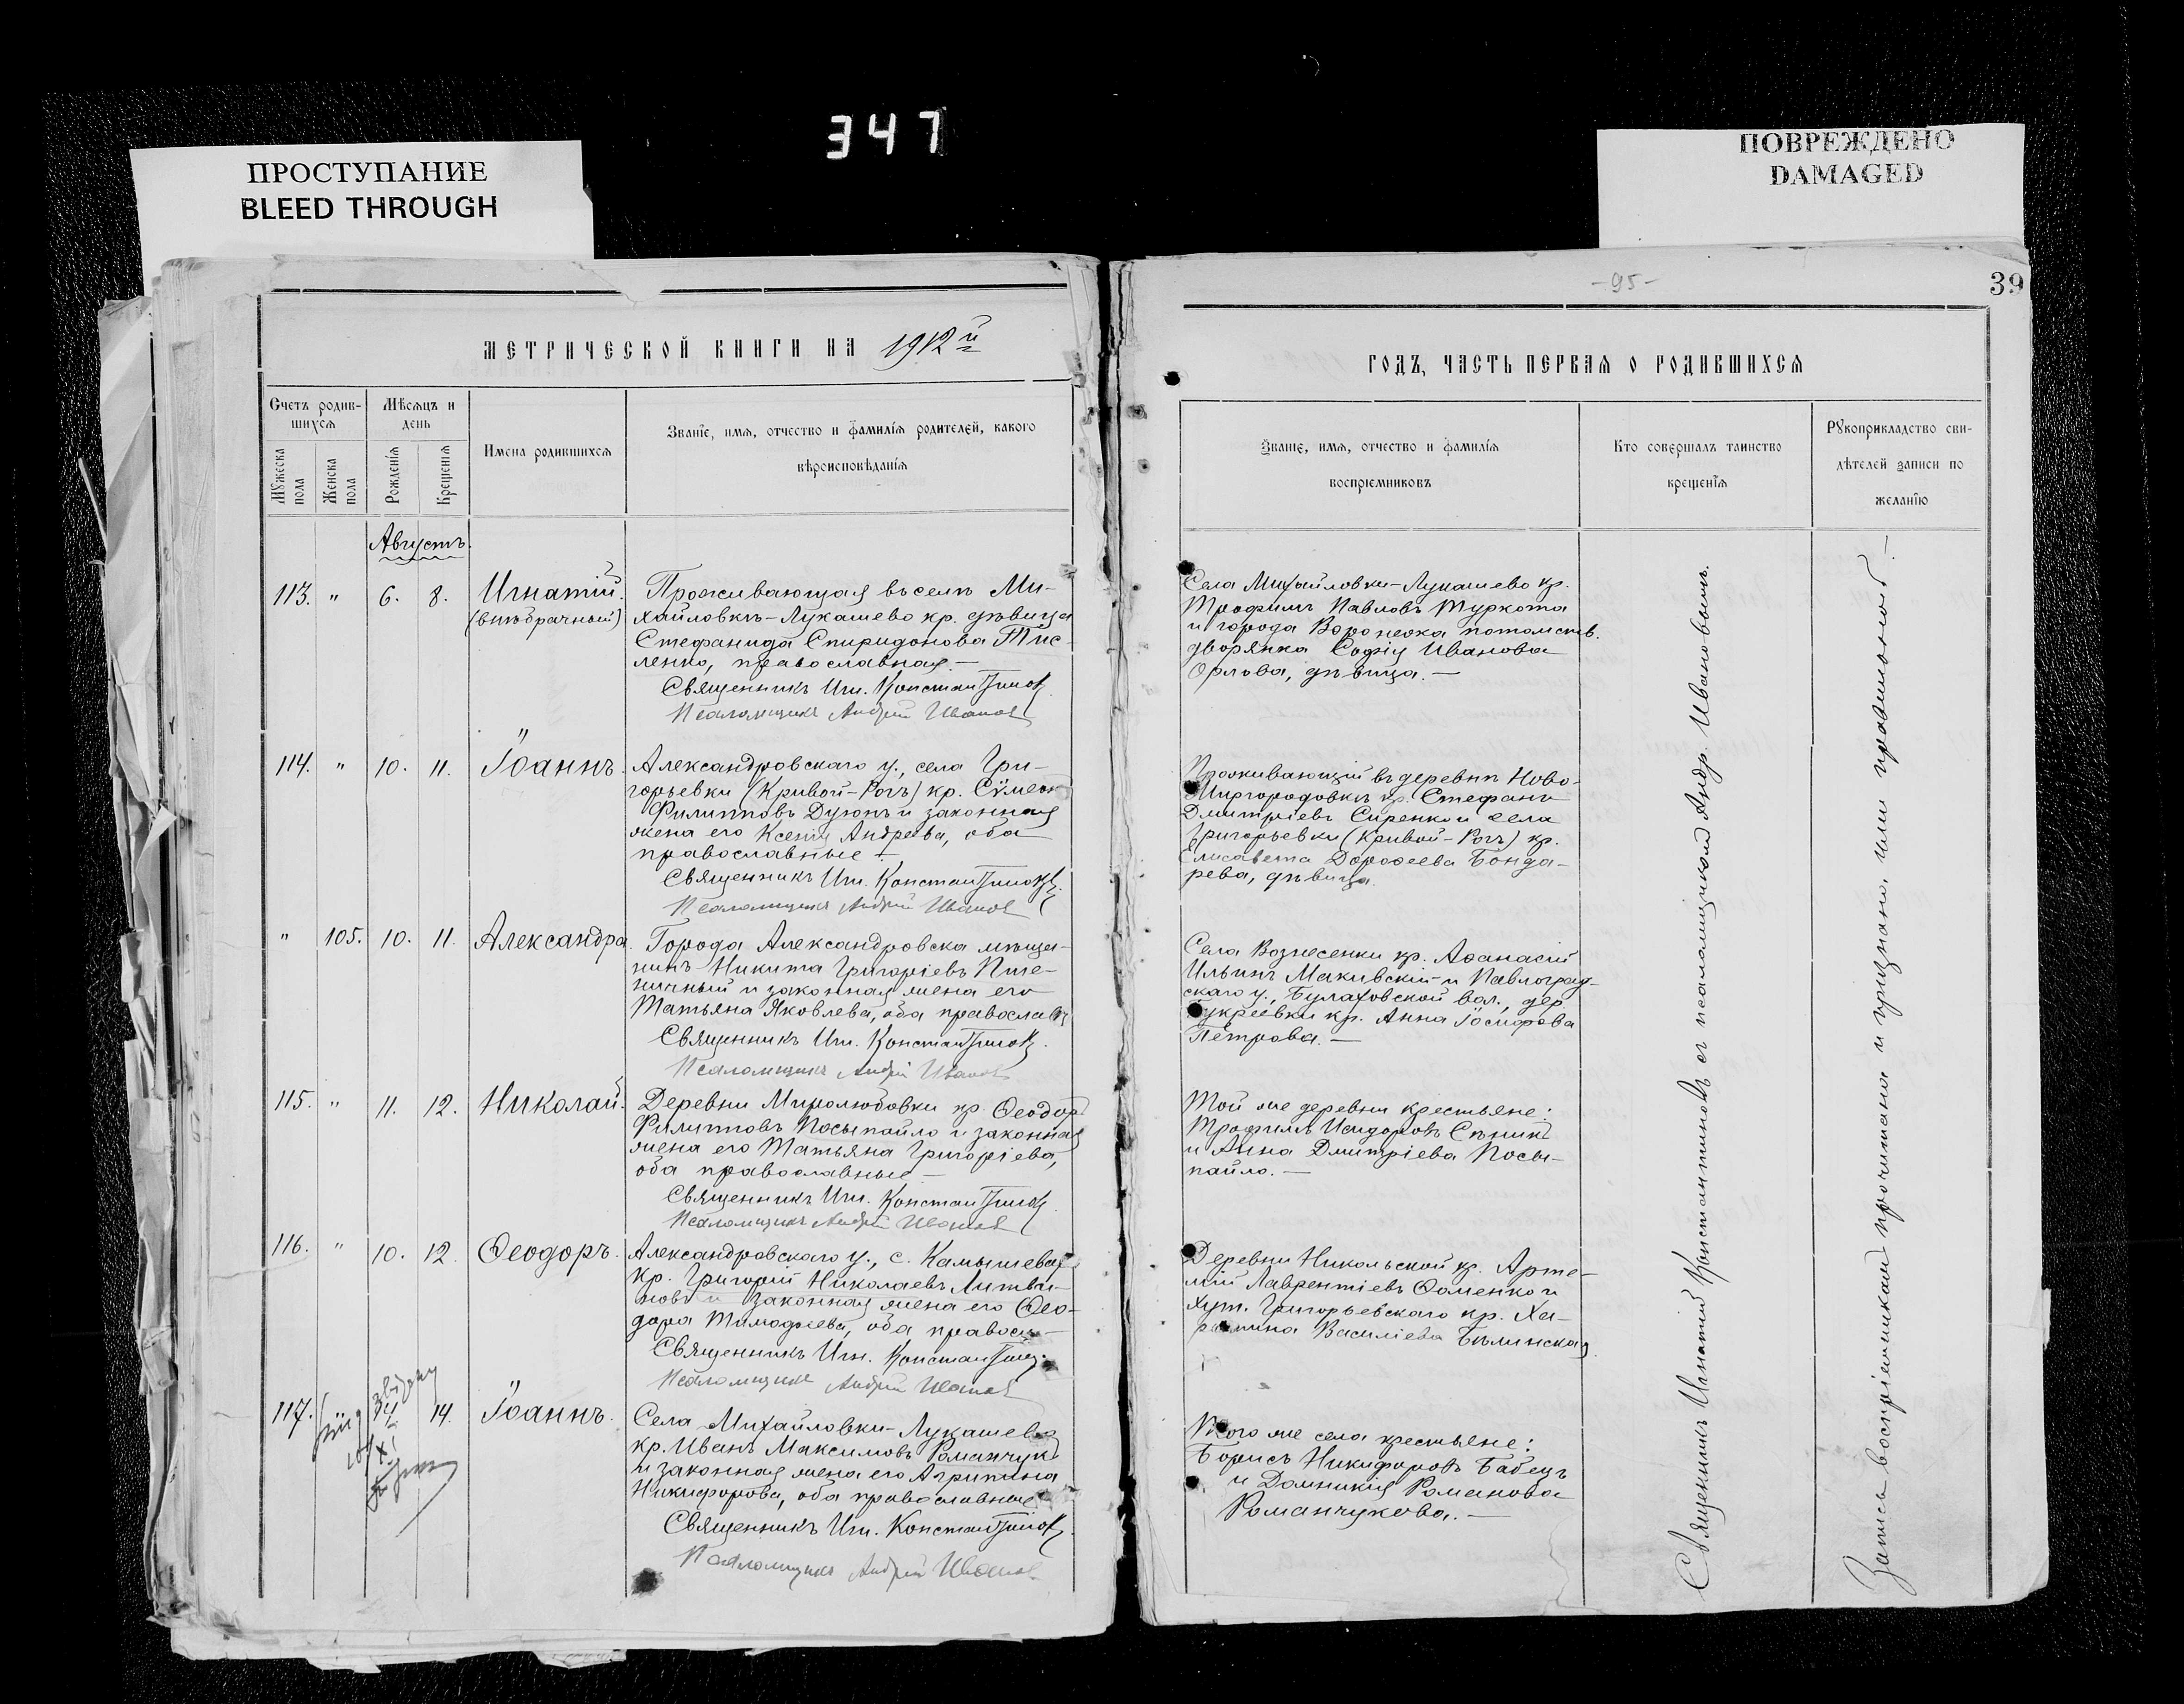 347
ПРОСТУПАНИЕ
BLEED THROUGH
ПОВРЕЖДЕНО
DAMAGED
МЕТРИЧЕСКОЙ КНИГИ НА 1912й
Счетъ родив-
шихся
Мѣсяцъ и
день
Имена родившихся
Званіе, имя, отчество и фамилія родителей, какого
вѣроисповѣданія
Мужеска
пола
Женска
пола
Рожденія
Крещенія
Августъ.
113. " 6. 8. Игнатій.
(внѣбрачный)
Проживающая въ селѣ Ми-
хайловкѣ-Лукашево кр. дѣвица
Стефанида Спиридонова Тис-
ленко, православная.—
Священникъ Игн. Константиновъ.
Псаломщикъ Андрей Ивановъ
114. " 10. 11. Іоаннъ.
Александровскаго у., села Гри-
горьевки (Кривой-Рогъ) кр. Сѵмеонъ
Филипповъ Дузь и законная
жена его Ксенія Андреева, оба
православные.—
Священникъ Игн. Константиновъ.
Псаломщикъ Андрей Ивановъ
" 105. 10. 11. Александра.
Города Александровска мѣща-
нинъ Никита Григоріевъ Пше-
ничный и законная жена его
Татьяна Яковлева, оба православн
Священникъ Игн. Константиновъ.
Псаломщикъ Андрей Ивановъ
115. " 11. 12. Николай.
Деревни Миролюбовки кр. Ѳеодоръ
Филипповъ Посыпайло и законная
жена его Татьяна Григоріева,
оба православные.—
Священникъ Игн. Константиновъ.
Псаломщикъ Андрей Ивановъ
116. " 10. 12. Ѳеодоръ.
Александровскаго у., с. Камышевахи
кр. Григорій Николаевъ Литви-
новъ и законная жена его Ѳео-
дора Тимофеева, оба правосл.—
Священникъ Игн. Константиновъ.
Псаломщикъ Андрей Ивановъ
117. 14. Іоаннъ.
Села Михайловки-Лукашево
кр. Иванъ Максимовъ Романчукъ
и законная жена его Агрипина
Никифорова, оба православные
Священникъ Игн. Константиновъ
Псаломщикъ Андрей Ивановъ
-95-
39
ГОДЪ, ЧАСТЬ ПЕРВАЯ О РОДИВШИХСЯ
Званіе, имя, отчество и фамилія
воспріемниковъ
Кто совершалъ таинство
крещенія
Рукоприкладство сви-
дѣтелей записи по
желанію
Села Михайловки-Лукашево кр.
Трофимъ Павловъ Туркота
и города Воронежа потомств.
дворянка Софія Иванова
Орлова, дѣвица.—
Проживающій въ деревнѣ Ново-
Миргородовкѣ кр. Стефанъ
Дмитріевъ Сиренко и села
Григорьевки (Кривой-Рогъ) кр.
Елисавета Дороѳеева Бонда-
рева, дѣвица.
Села Вознесенки кр. Аѳанасій
Ильинъ Макивскій и Павлоград-
скаго у., Булаховской вол., дер.
кр. Анна Іосифова
Петрова.—
Той же деревни крестьяне:
Трофимъ Исидоровъ Сѣникъ
и Анна Дмитріева Посы-
пайло.—
Деревни Никольской кр. Арте-
мій Лаврентіевъ Ѳоменко и
хут. Григорьевскаго кр. Ха-
ритина Василіева Бѣлинская.
Того же села крестьяне:
Борисъ Никифоровъ Бабецъ
и Домникія Романова
Романчукова.—
Священникъ Игнатій Константиновъ съ псаломщикомъ Андр. Ивановымъ.
Запись воспріемниками прочитана и признана ими правильной.—